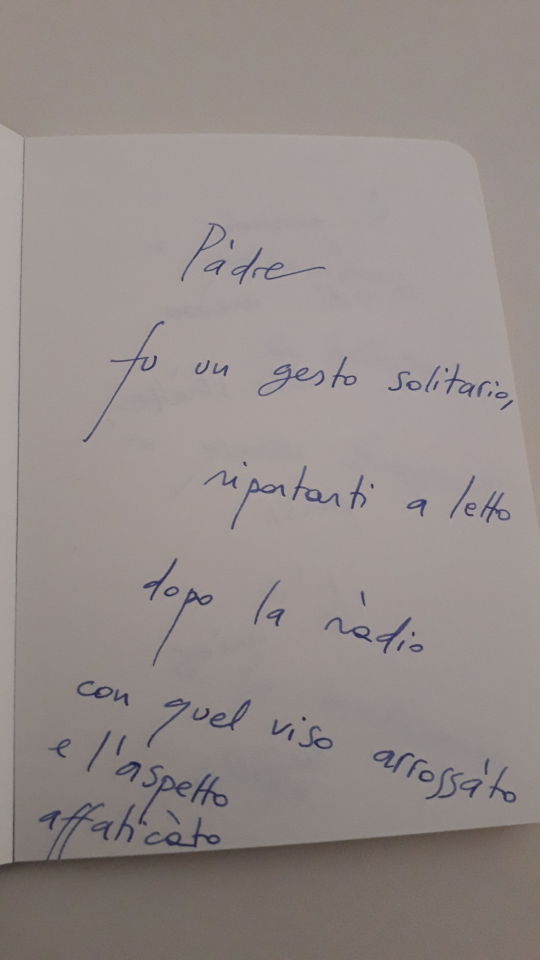 Pàdre
fu un gesto solitario,
riportarti a letto
dopo la ràdio
con quel viso arrossàto
e l'aspetto
affaticàto